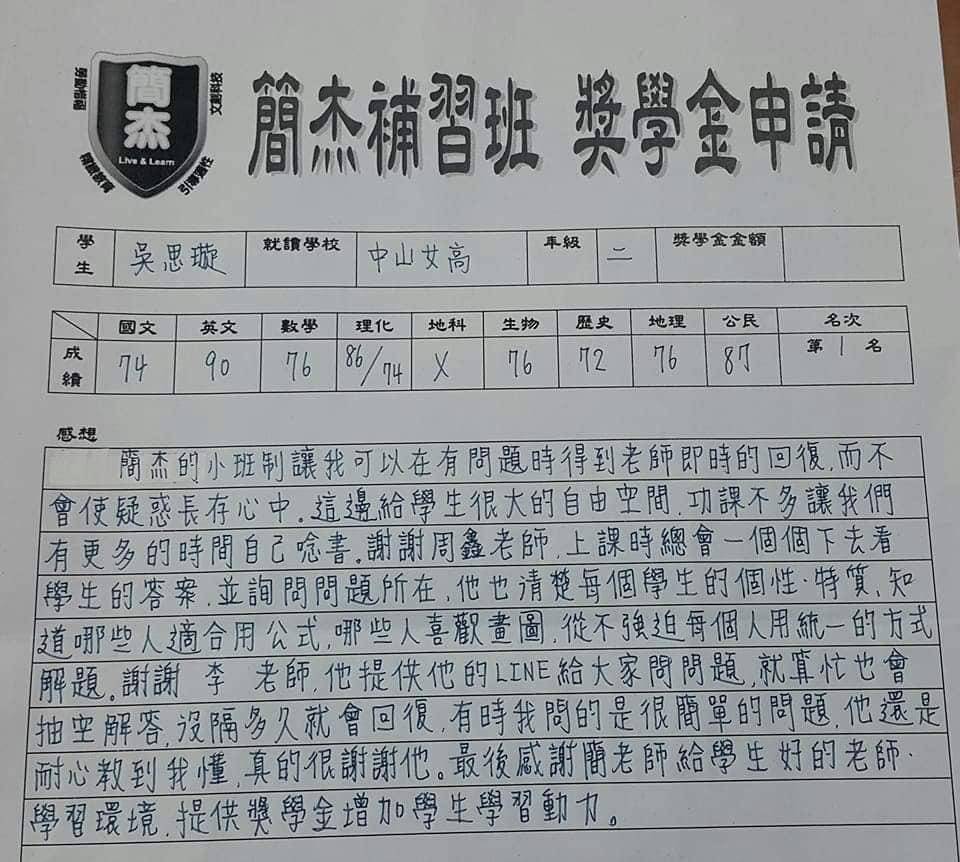 簡杰
Live & Learn
文創科技
簡杰補習班 獎學金申請
學生 吳思璇 就讀學校 中山女高 年級 二 獎學金金額
國文 英文 數學 理化 地科 生物 歷史 地理 公民 名次
成績 74 90 76 86/74 X 76 72 76 87 第1名
感想
簡杰的小班制讓我可以在有問題時得到老師即時的回復,而不
會使疑惑長存心中。這邊給學生很大的自由空間,功課不多讓我們
有更多的時間自己唸書。謝謝周鑫老師,上課時總會一個個下去看
學生的答案,並詢問問題所在,他也清楚每個學生的個性、特質,知
道哪些人適合用公式,哪些人喜歡畫圖,從不強迫每個人用統一的方式
解題。謝謝 李 老師,他提供他的LINE給大家問問題,就算忙也會
抽空解答,沒隔多久就會回復,有時我問的是很簡單的問題,他還是
耐心教到我懂,真的很謝謝他。最後感謝簡老師給學生好的老師、
學習環境,提供獎學金增加學生學習動力。